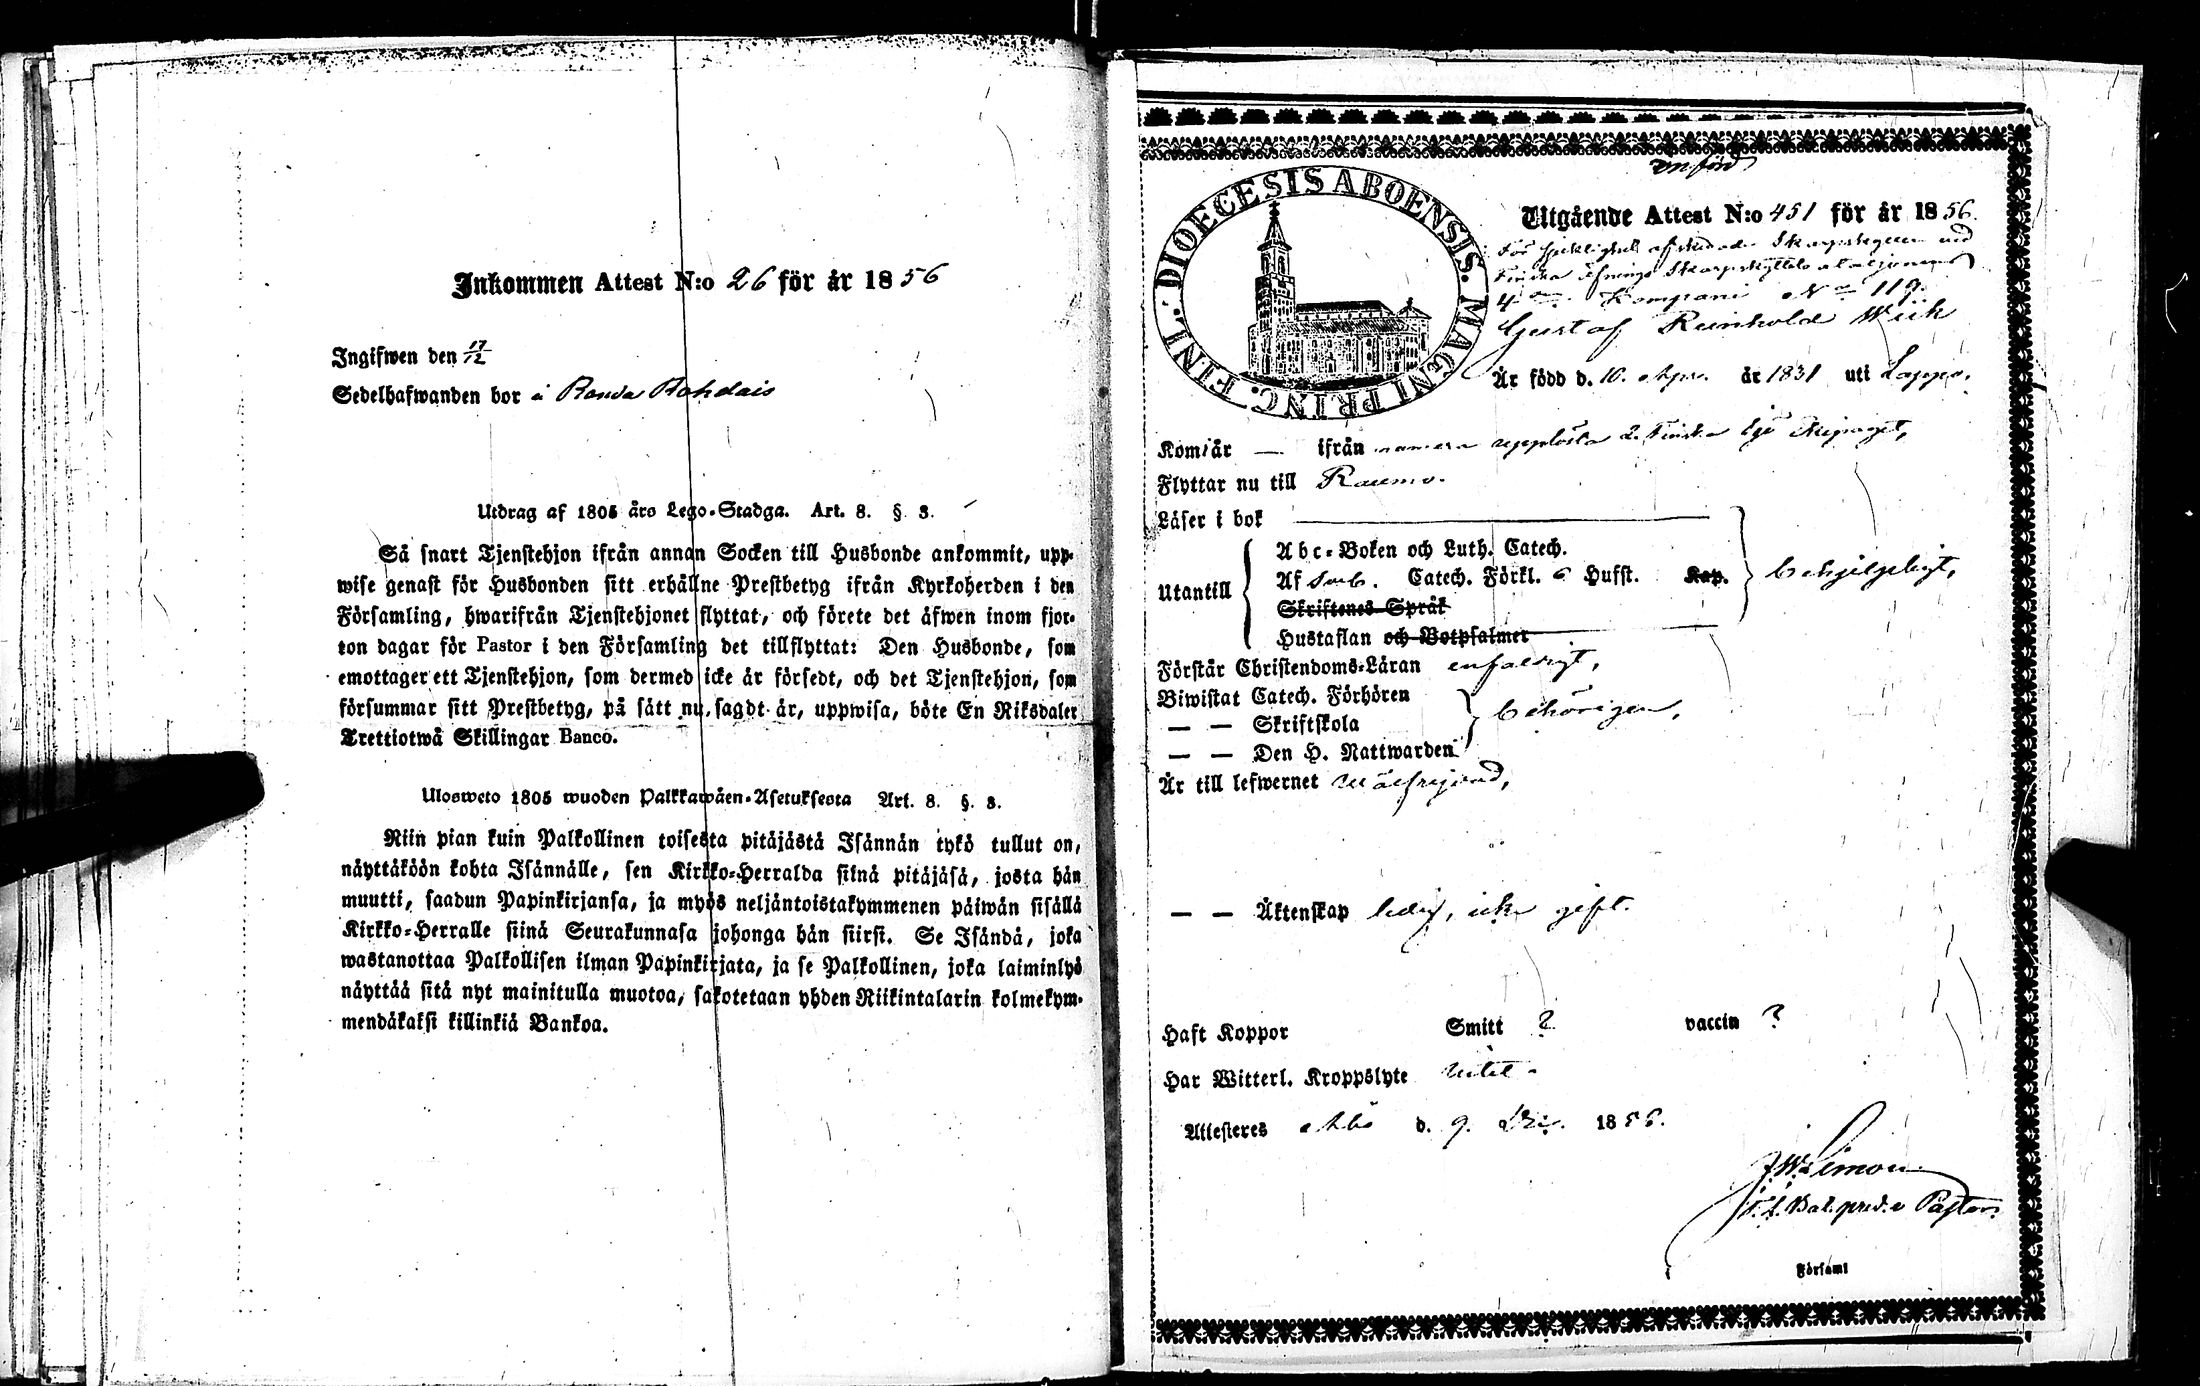 Inkommen Attest N:o 26 för år 1856
Ingifwen den 17/12
Sedelhafwanden bor å
Utdrag af 1805 års Lego-Stadga. Art. 8. § 3.
Så snart Tjenstehjon ifrån annan Socken till Husbonde ankommit, upp-
wise genast för Husbonden sitt erhållne Prestbetyg ifrån Kyrkoherden i den
Församling, hwarifrån Tjenstehjonet flyttat, och förete det äfwen inom fjor-
ton dagar för Pastor i den Församling det tillflyttat: Den Husbonde, som
emottager ett Tjenstehjon, som dermed icke är försedt, och det Tjenstehjon, som
försummar sitt Prestbetyg, på sätt nu sagdt är, uppwisa, böte En Riksdaler
Trettiotwå Skillingar Banco.
Ulosweto 1805 wuoden Palkkawäen-Asetuksesta Art. 8. §. 3.
Niin pian kuin Palkollinen toisesta pitäjästä Isännän tykö tullut on,
näyttäköön kohta Isännälle, sen Kirkko-Herralda siinä pitäjäsä, josta hän
muutti, saadun Papinkirjansa, ja myös neljäntoistakymmenen päiwän sisällä
Kirkko-Herralle siinä Seurakunnasa johonga hän siirsi. Se Isändä, joka
wastanottaa Palkollisen ilman Papinkirjata, ja se Palkollinen, joka laiminlyö
näyttää sitä nyt mainitulla muotoa, sakotetaan yhden Riikintalarin kolmekym-
mendäkaksi killinkiä Bankoa.
DIOECESIS ABOENSIS. MAGNI PRINC. FINL.
Införd
Utgående Attest N:o 451 för år 1856.
För sjuklighet afskedade Skarpskytten wid
Finska Skarpskytte bataljonens
4de Kompani No 119.
Gustaf Reinhold Wiik
Är född d. 10. Apr. år 1831 uti Lappo.
Kom år — ifrån numera upplösta 2. Finska
Flyttar nu till Raumo.
Läser i bok
Utantill
Abc-Boken och Luth. Catech.
Af Catech. Förkl. o Hufst. Kap.
Skriftenes Språk
Hustaflan och Botpsalmer
behjelpligt,
Förstår Christendoms-Läran enfaldigt,
Biwistat Catech. Förhören
— — Skriftskola
— — Den H. Nattwarden
behörigen,
Är till lefwernet wälfrejdad,
— — Äktenskap ledig, icke gift.
Haft Koppor Smitt ? vaccin ?
Har Witterl. Kroppslyte
Attesteres Åbo d. 9. Dec. 1856.
J. W. Limon
T. f. Bat. pred. o Pastor.
Församl